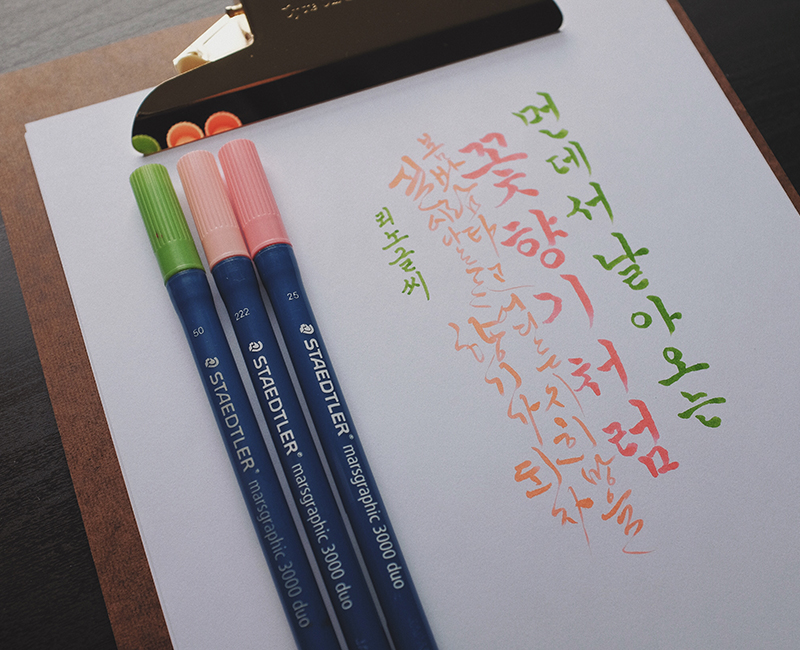 먼데서 날아오는
꽃향기처럼
봄바람 타고 어디든지 희망을
실어 나르는 향기가 되자
글씨
50 STAEDTLER® marsgraphic 3000 duo
222 STAEDTLER® marsgraphic 3000 duo
25 STAEDTLER® marsgraphic 3000 duo